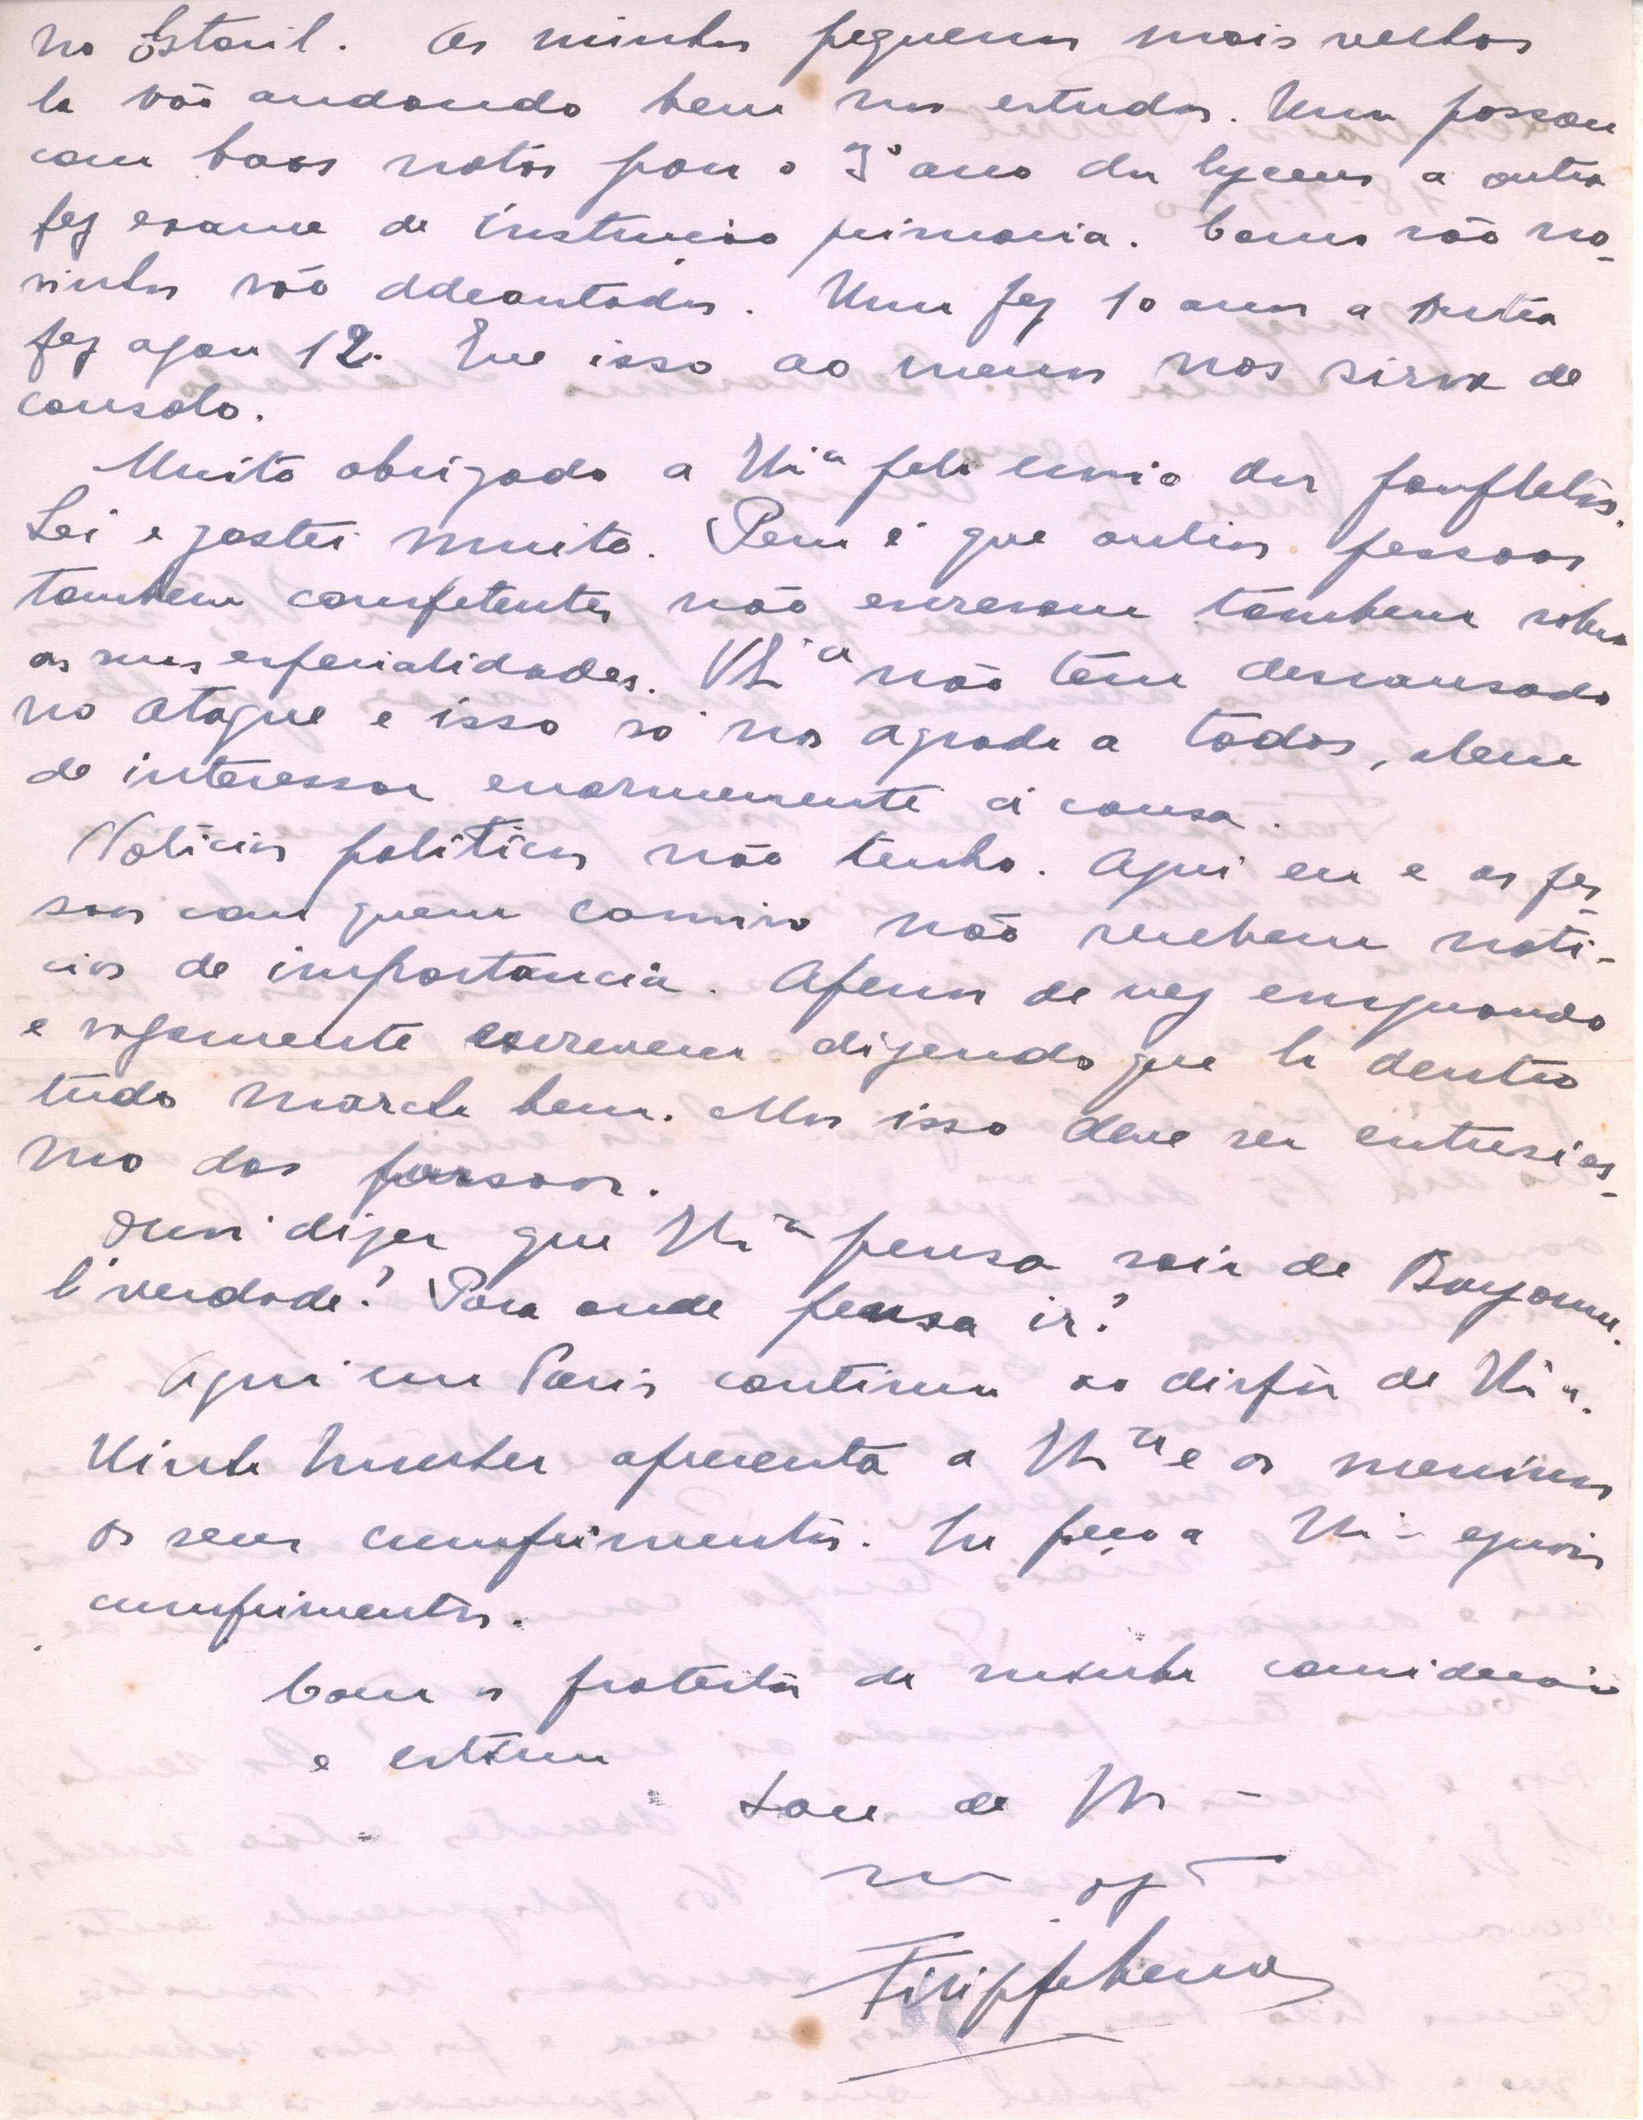 no Estoril. Os minhas pequenas mais velhas
la vão andando bem nos estudos. Uma passou
com boas notas para o 3º ano du lyceus a outra
fez exame de instrucão primaria. Como são no-
vinhas vão adeantadas. Uma fez 10 anos a outra
fez agora 12. Que isso ao menos nos sirva de
consolo.
Muito obrigado a V. Exª pelo envio dos panfletos.
Lei e gostei muito. Pena é que outras pessoas
tambem competentes não escrevam tambem sobre
as suas especialidades. V. Exª não têm descansado
no ataque e isso só nos agrada a todos, alem
de interessar enormemente á causa.
Noticias politicas não tenho. Aqui eu e as pes-
soas com quem convivo não recebem noti-
cias de importancia. Apenas de vez emquando
e vagamente escrevem dizendo que la dentro
tudo marcha bem. Mas isso deve ser entusias-
mo das pessoas.
Ouvi dizer que V. Exª pensa sair de Bayonne.
É verdade? Para onde pensa ir?
Aqui em Paris continuo ao dispôr de V. Exª.
Minha mulher apresenta a V. Exª e os meninos
os seus cumprimentos. Eu peço a V. Exª eguais
cumprimentos.
Com os protestos da minha consideração
e estima
Sou de V. Exª
Filippe